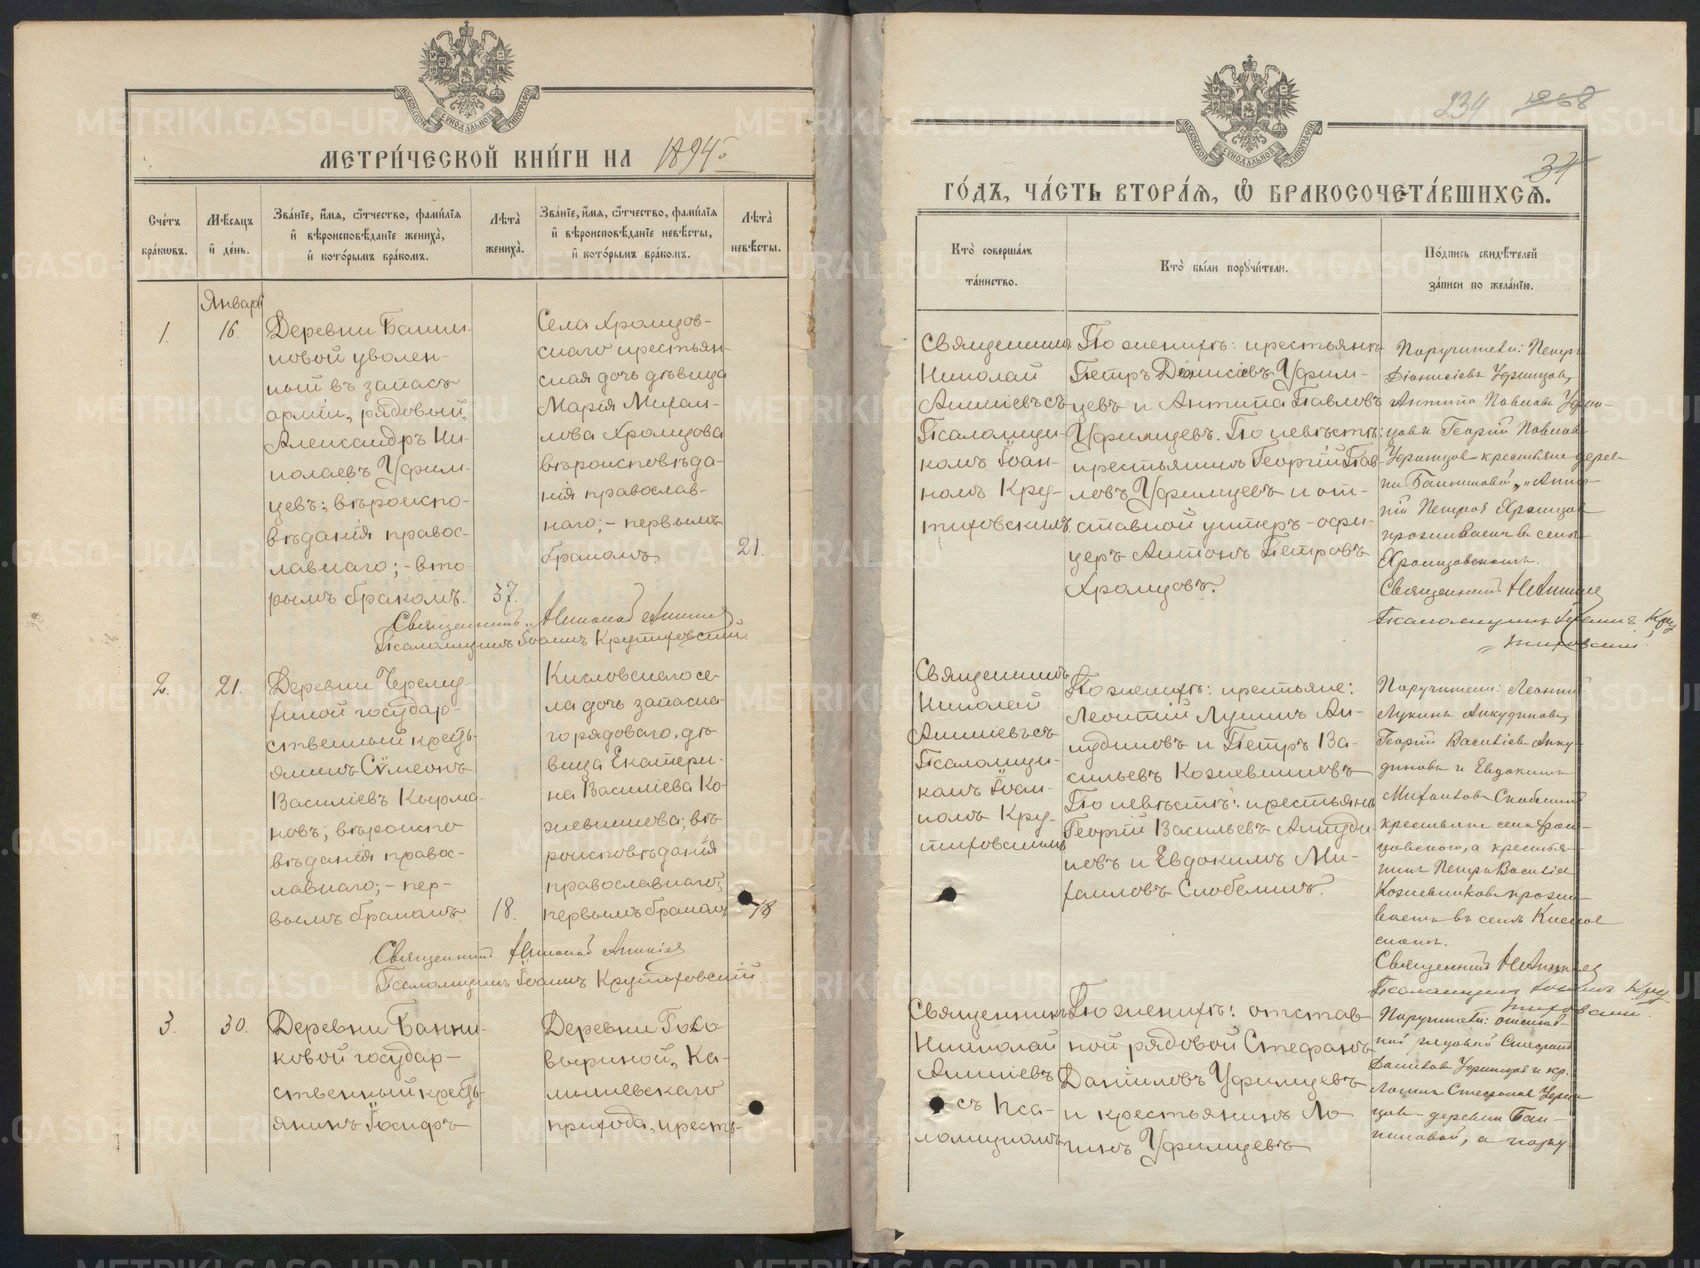 МЕТРИ́ЧЕСКОЙ КНИ́ГИ НА 1894
Сче́тъ бра́кωвъ.
Мѣ́сяцъ и҆ де́нь.
Зва́нїе, и҆́мя, ѻ҆́тчество, фами́лїя и҆ вѣроисповѣ́данїе жениха̀, и҆ кото́рымъ бра́комъ.
Лѣта̀ жениха̀.
Зва́нїе, и҆́мя, ѻ҆́тчество, фами́лїя и҆ вѣроисповѣ́данїе невѣ́сты, и҆ кото́рымъ бра́комъ.
Лѣта̀ невѣ́сты.
Январь
1.
16.
Деревни Банни-
ковой уволен-
ный въ запасъ
армiи, рядовый,
Александръ Ни-
колаевъ Уфим-
цевъ; вѣроиспо-
вѣданiя правос-
лавнаго; - вто-
рымъ бракомъ.
37.
Села Хромцов-
скаго крестьян-
ская дочь дѣвица
Марiя Михаи-
лова Хромцова
вѣроисповѣда-
нiя православ-
наго; - первымъ
бракомъ.
21.
Священникъ Николай Аникiев
Псаломщикъ Iоаннъ Крутиховскiй.
2.
21.
Деревни Черемы-
ской государ-
ственный кресть-
янинъ Сѵмеонъ
Василiевъ Кырма-
новъ; вѣроиспо-
вѣданiя правос-
лавнаго; - пер-
вымъ бракомъ.
18.
Кисловскаго се-
ла дочь запасна-
го рядоваго, дѣ-
вица Екатери-
на Василiева Ко-
жевникова; вѣ-
роисповѣданiя
православнаго;
первымъ бракомъ
18
Священникъ Николай Аникiев
Псаломщикъ Iоаннъ Крутиховскiй
3.
30.
Деревни Банни-
ковой государ-
ственный кресть-
янинъ Iосифъ
Деревни Голо-
выриной, Ка-
мышевскаго
прихода, кресть-
234 1268
34
ГО́ДЪ, ЧА́СТЬ ВТОРА́Я, Ѽ БРАКОСОЧЕТА́ВШИХСЯ.
Кто̀ соверша́лъ та́инство.
Кто̀ бы́ли порꙋчи́тели.
По́дпись свидѣ́телей за́писи по жела́нїю.
Священникъ
Николай
Аникiевъ съ
Псаломщи-
комъ Iоан-
номъ Кру-
тиховскимъ.
По женихѣ: крестьяне
Петръ Дiонисiевъ Уфим-
цевъ и Антипа Павловъ
Уфимцевъ. По невѣстѣ:
крестьянинъ Георгiй Пав-
ловъ Уфимцевъ и от-
ставной унтеръ-офи-
церъ Антонъ Петровъ
Хромцовъ.
Поручители: Петръ
Дiонисiевъ Уфимцовъ,
Антипа Павловъ Уфим-
цовъ Георгiй Павловъ
Уфимцовъ крестьяне дерев-
ни Банниковой, Анто-
нiй Петровъ Хромцовъ
проживаетъ въ селѣ
Хромцовскомъ.
Священникъ Н Аникiев
Псаломщикъ Iоаннъ Кру
тиховскiй.
Священникъ
Николай
Аникiевъ съ
Псаломщи-
комъ Iоан-
номъ Кру-
тиховскимъ
По женихѣ: крестьяне:
Леонтiй Лукинъ Ан-
кудиновъ и Петръ Ва-
сильевъ Кожевниковъ
По невѣстѣ: крестьяне
Георгiй Васильевъ Анкуди-
новъ и Евдокимъ Ми-
хаиловъ Скобелинъ.
Поручители: Леонтiй
Лукинъ Анкудиновъ,
Георгiй Василiевъ Анку-
диновъ и Евдокимъ
Михаиловъ Скобелинъ
крестьяне села Хром-
цовскаго, а крестья-
нинъ Петръ Василiевъ
Кожевниковъ прожи-
ваетъ въ селѣ Кислов-
скомъ.
Священникъ Н Аникiев
Псаломщикъ Iоаннъ Кру
тиховскiй.
Священникъ
Николай
Аникiевъ
съ пса-
ломщикомъ
По женихѣ: отстав-
ной рядовой Стефанъ
Данiиловъ Уфимцевъ
и крестьянинъ Ло-
гинъ Уфимцевъ
Поручители: отстав-
ной рядовой Стефанъ
Данiиловъ Уфимцовъ и кр.
Логинъ Стефановъ Уфим-
цовъ деревни Бан-
никовой, а пору-